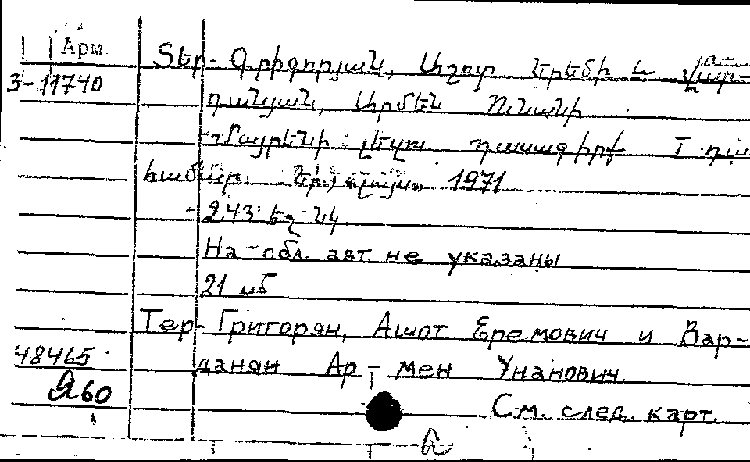 Арм.
3-11740
Տեր-Գրիգորյան, Աշոտ Երեմի և Վար-
դանյան, Արմեն Ունանի
Մայրենի լեզու դասագիրք I դա
համար. 1971
243 եջ նկ
На обл. авт не указаны
21 սմ
Тер-Григорян, Ашот Еремович и Вар-
48465
данян Ар-мен Унанович.
Я60
См. след. карт.